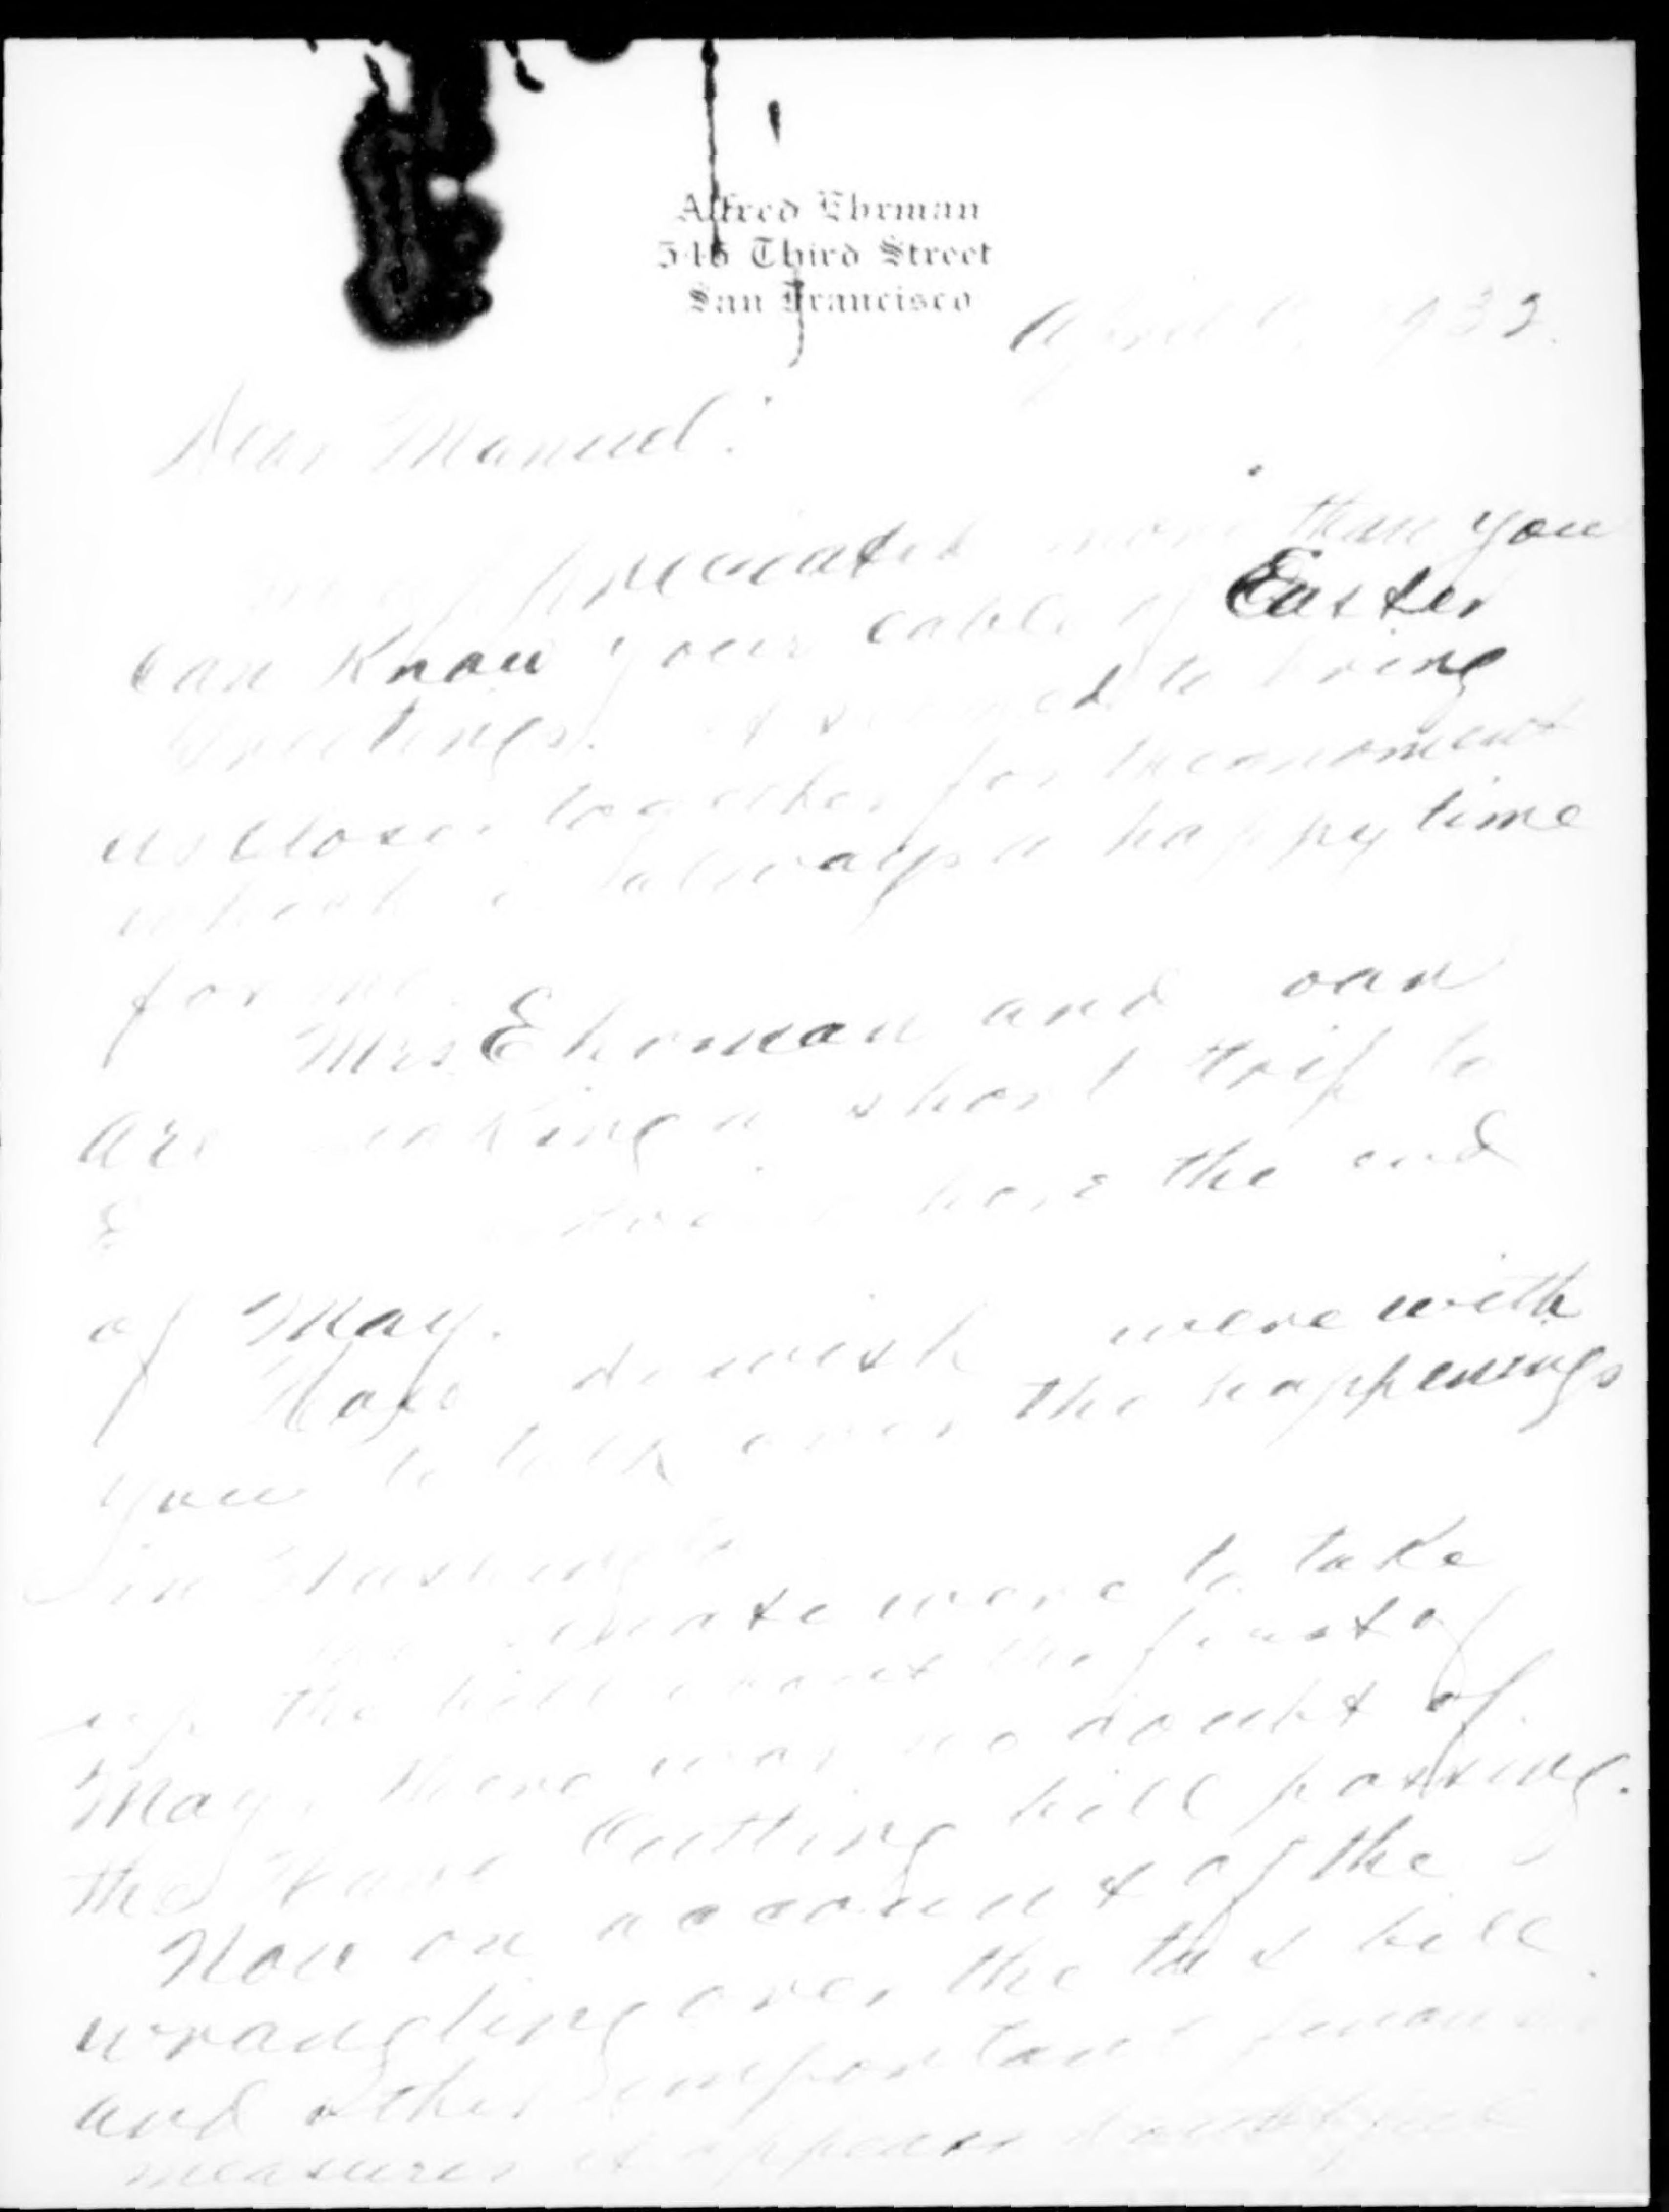 Alfred Ehrman
545 Third Street
San Francisco
April 1932.
Dear Manuel:
appreciated more than you
can know your cable of Easter
Greetings. It seemed to bring
us closer together for the moment
which is always a happy time
for me.
Mrs Ehrman and
are making a short trip to
the end
of May.
How do wish were with
you to talk over the happenings
in Washington
Senate were to take
up the bill about the first of
May, there was no doubt of
the Hawes Cutting bill passing.
Now on account of the
wrangling over the tax bill
and other important financial
measures it appears doubtful